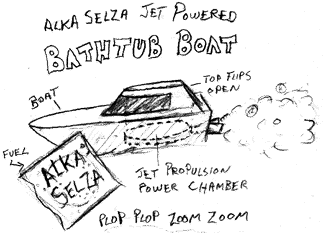 ALKA SELZA JET POWERED
BATHTUB BOAT
TOP FLIPS
OPEN
BOAT
FUEL
ALKA
SELZA
JET PROPULSION
POWER CHAMBER
PLOP PLOP ZOOM ZOOM